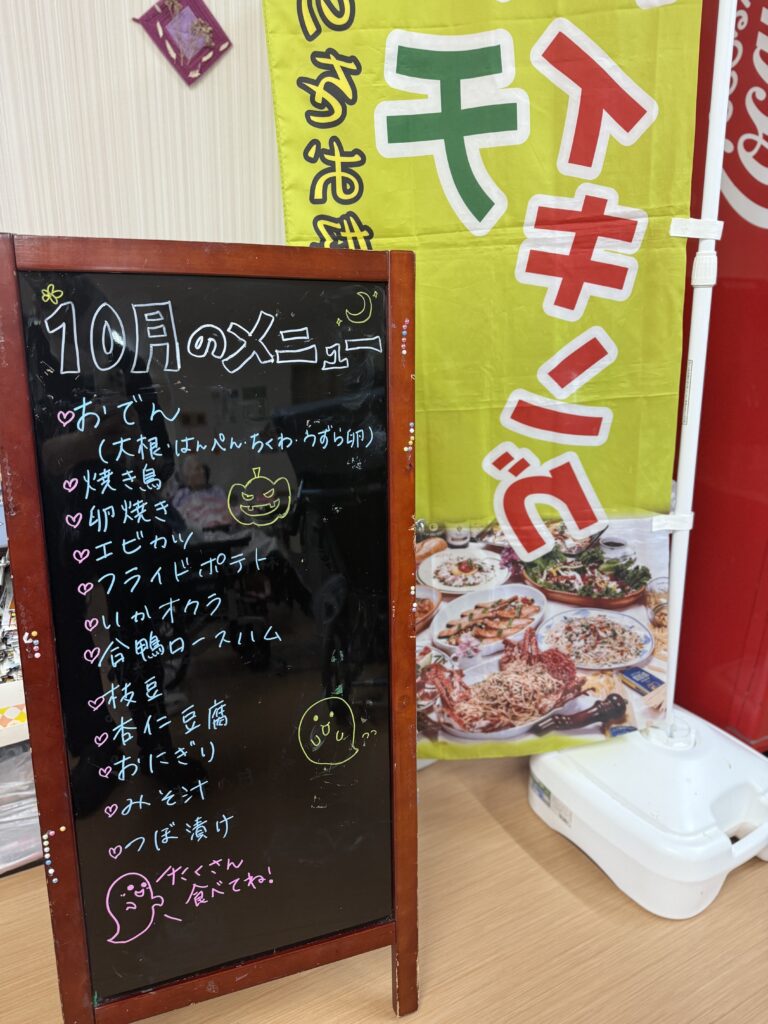 10月のメニュー
おでん
(大根・はんぺん・ちくわ・うずら卵)
焼き鳥
卵焼き
エビカツ
フライドポテト
いかオクラ
合鴨ロースハム
枝豆
杏仁豆腐
おにぎり
みそ汁
つぼ漬け
たくさん
食べてね!
イキング
チ